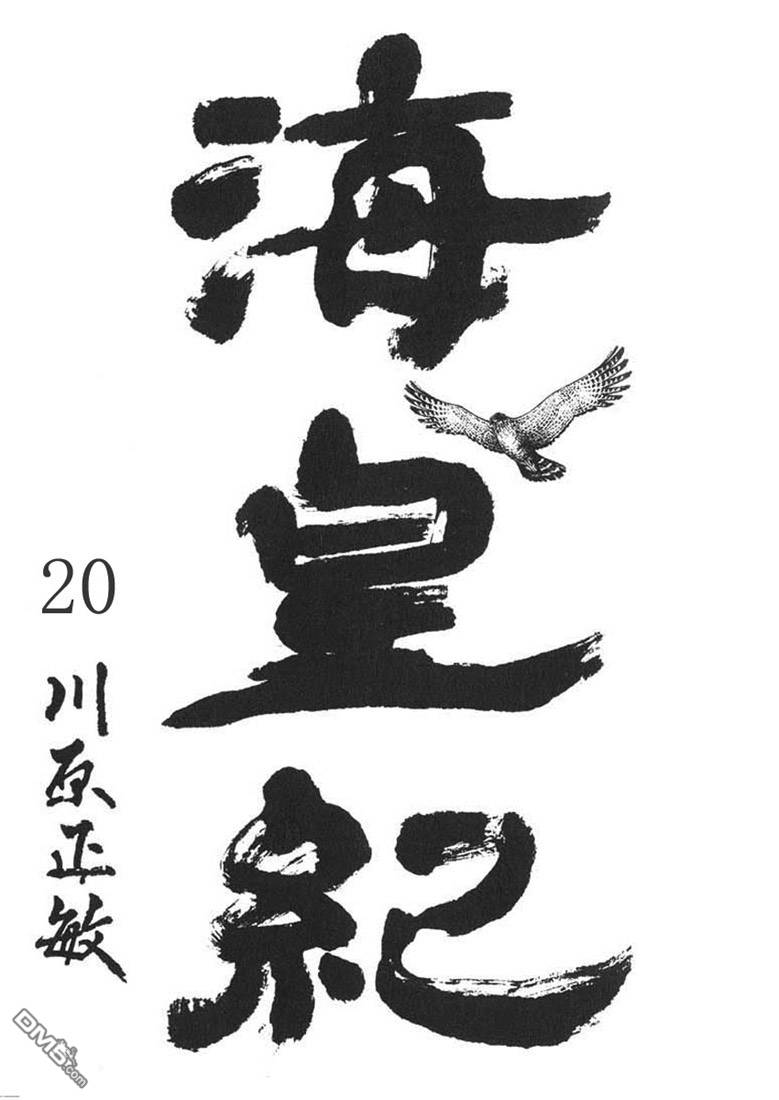 海皇紀
20
川原正敏
DM5.com